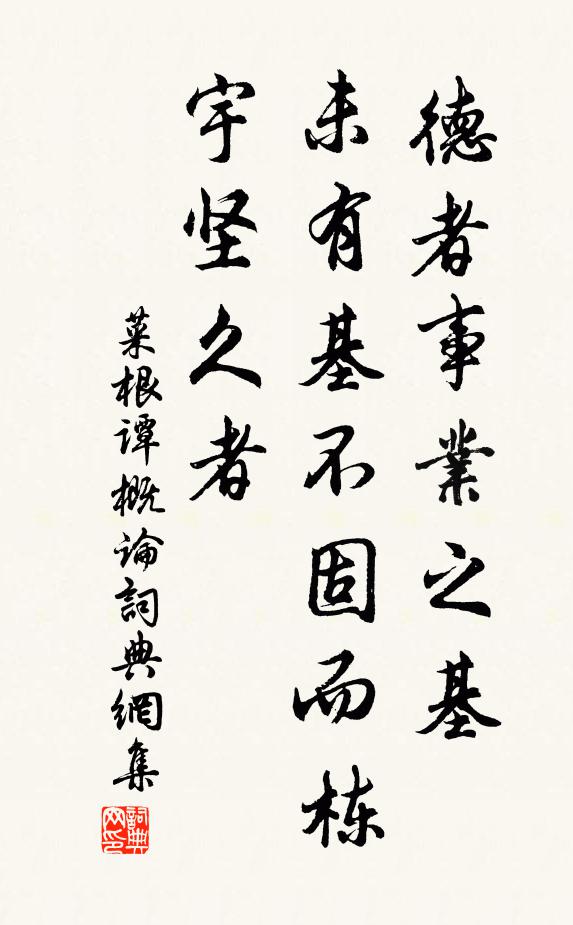 德者事業之基
未有基不固而栋
宇坚久者
菜根谭概論詞典網集
詞典
网印